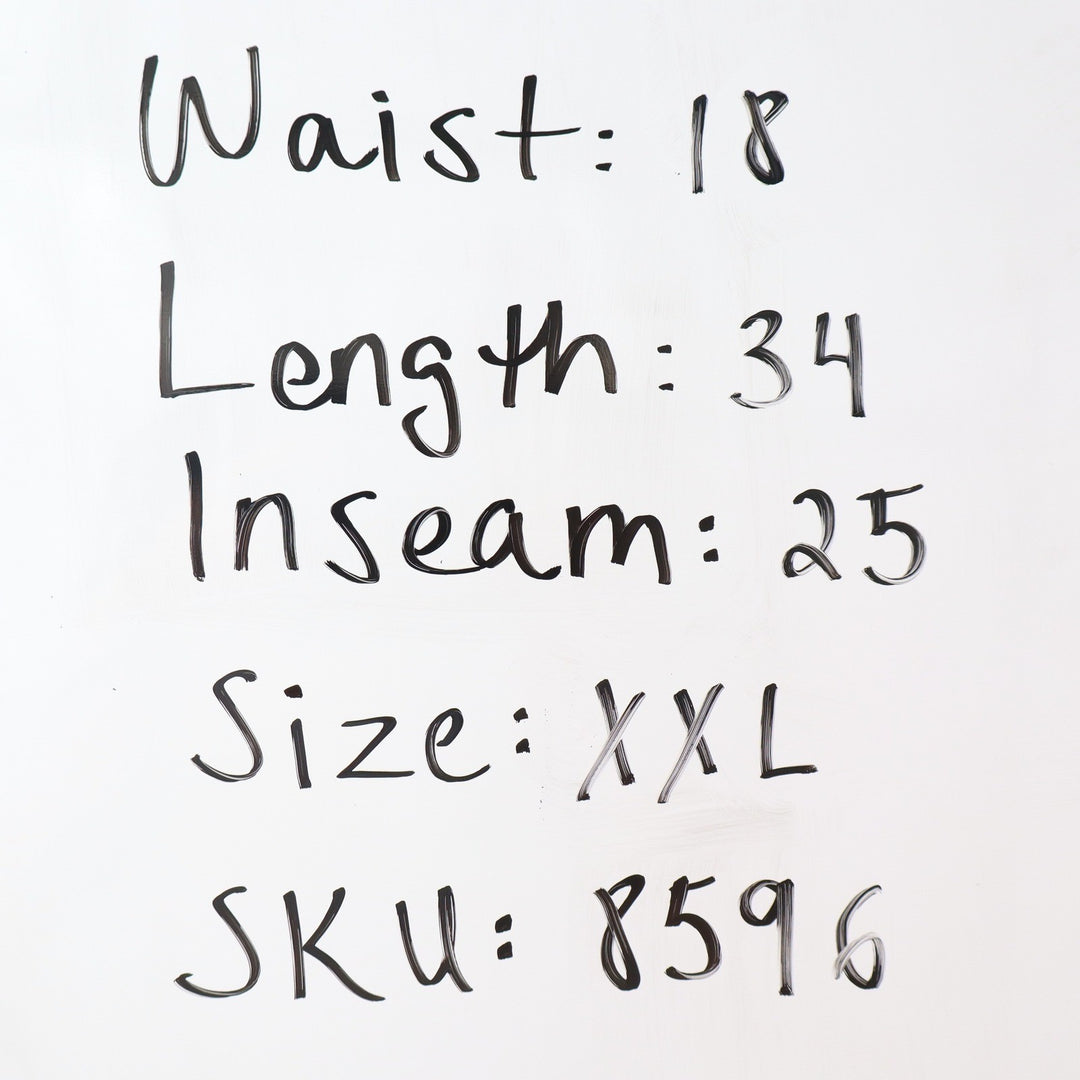 Waist: 18
Length: 34
Inseam: 25
Size: XXL
SKU: 8596